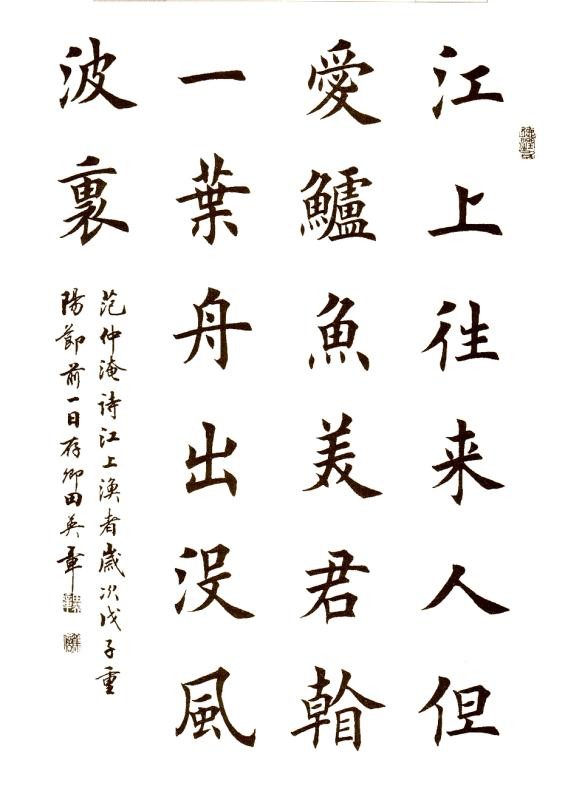 江上徃来人但
愛鱸魚美君看
一葉舟出没風
波裏
范仲淹詩江上漁者歲次戊子重
陽節前一日存卿田英章